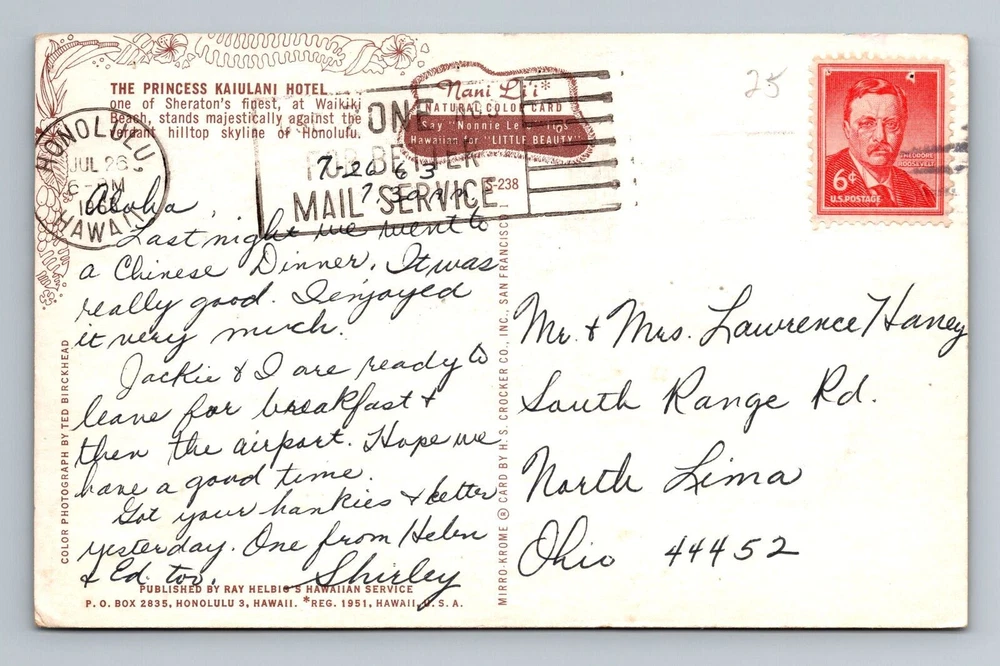 THE PRINCESS KAIULANI HOTEL
one of Sheraton's finest, at Waikiki
Beach, stands majestically against the
verdant hilltop skyline of Honolulu.
Nani Li'i*
NATURAL COLOR CARD
Say "Nonnie Lee"
Hawaiian for "LITTLE BEAUTY"
S-238
HONOLULU
JUL 26
HAWAII
ZONE NOS
FOR BETTER
MAIL SERVICE
25
THEODORE
ROOSEVELT
6¢
U.S. POSTAGE
7-26-63
7:30 a.m.
Aloha,
Last night we went to
a Chinese Dinner. It was
really good. I enjoyed
it very much.
Jackie & I are ready to
leave for breakfast &
then the airport. Hope we
have a good time.
Got your hankies & letter
yesterday. One from Helen
& Ed. too. Shirley
Mr. & Mrs. Lawrence Haney
South Range Rd.
North Lima
Ohio 44452
COLOR PHOTOGRAPH BY TED BIRCKHEAD
MIRRO-KROME ® CARD BY H. S. CROCKER CO., INC., SAN FRANCISCO
PUBLISHED BY RAY HELBIG'S HAWAIIAN SERVICE
P. O. BOX 2835, HONOLULU 3, HAWAII. *REG. 1951, HAWAII, U. S. A.